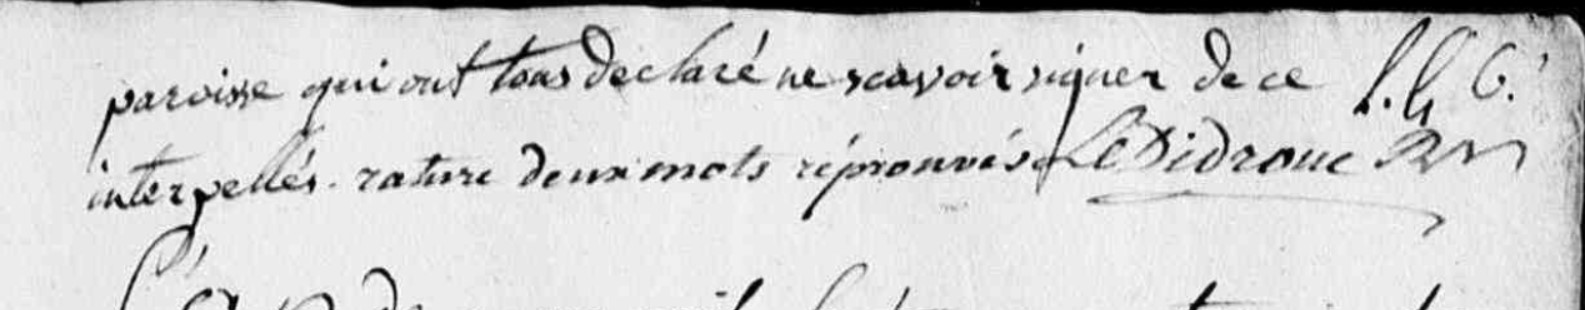 paroisse qui ont tous declaré ne scavoir signer de ce
interpellés. rature deux mots réprouvés Le Didrouc